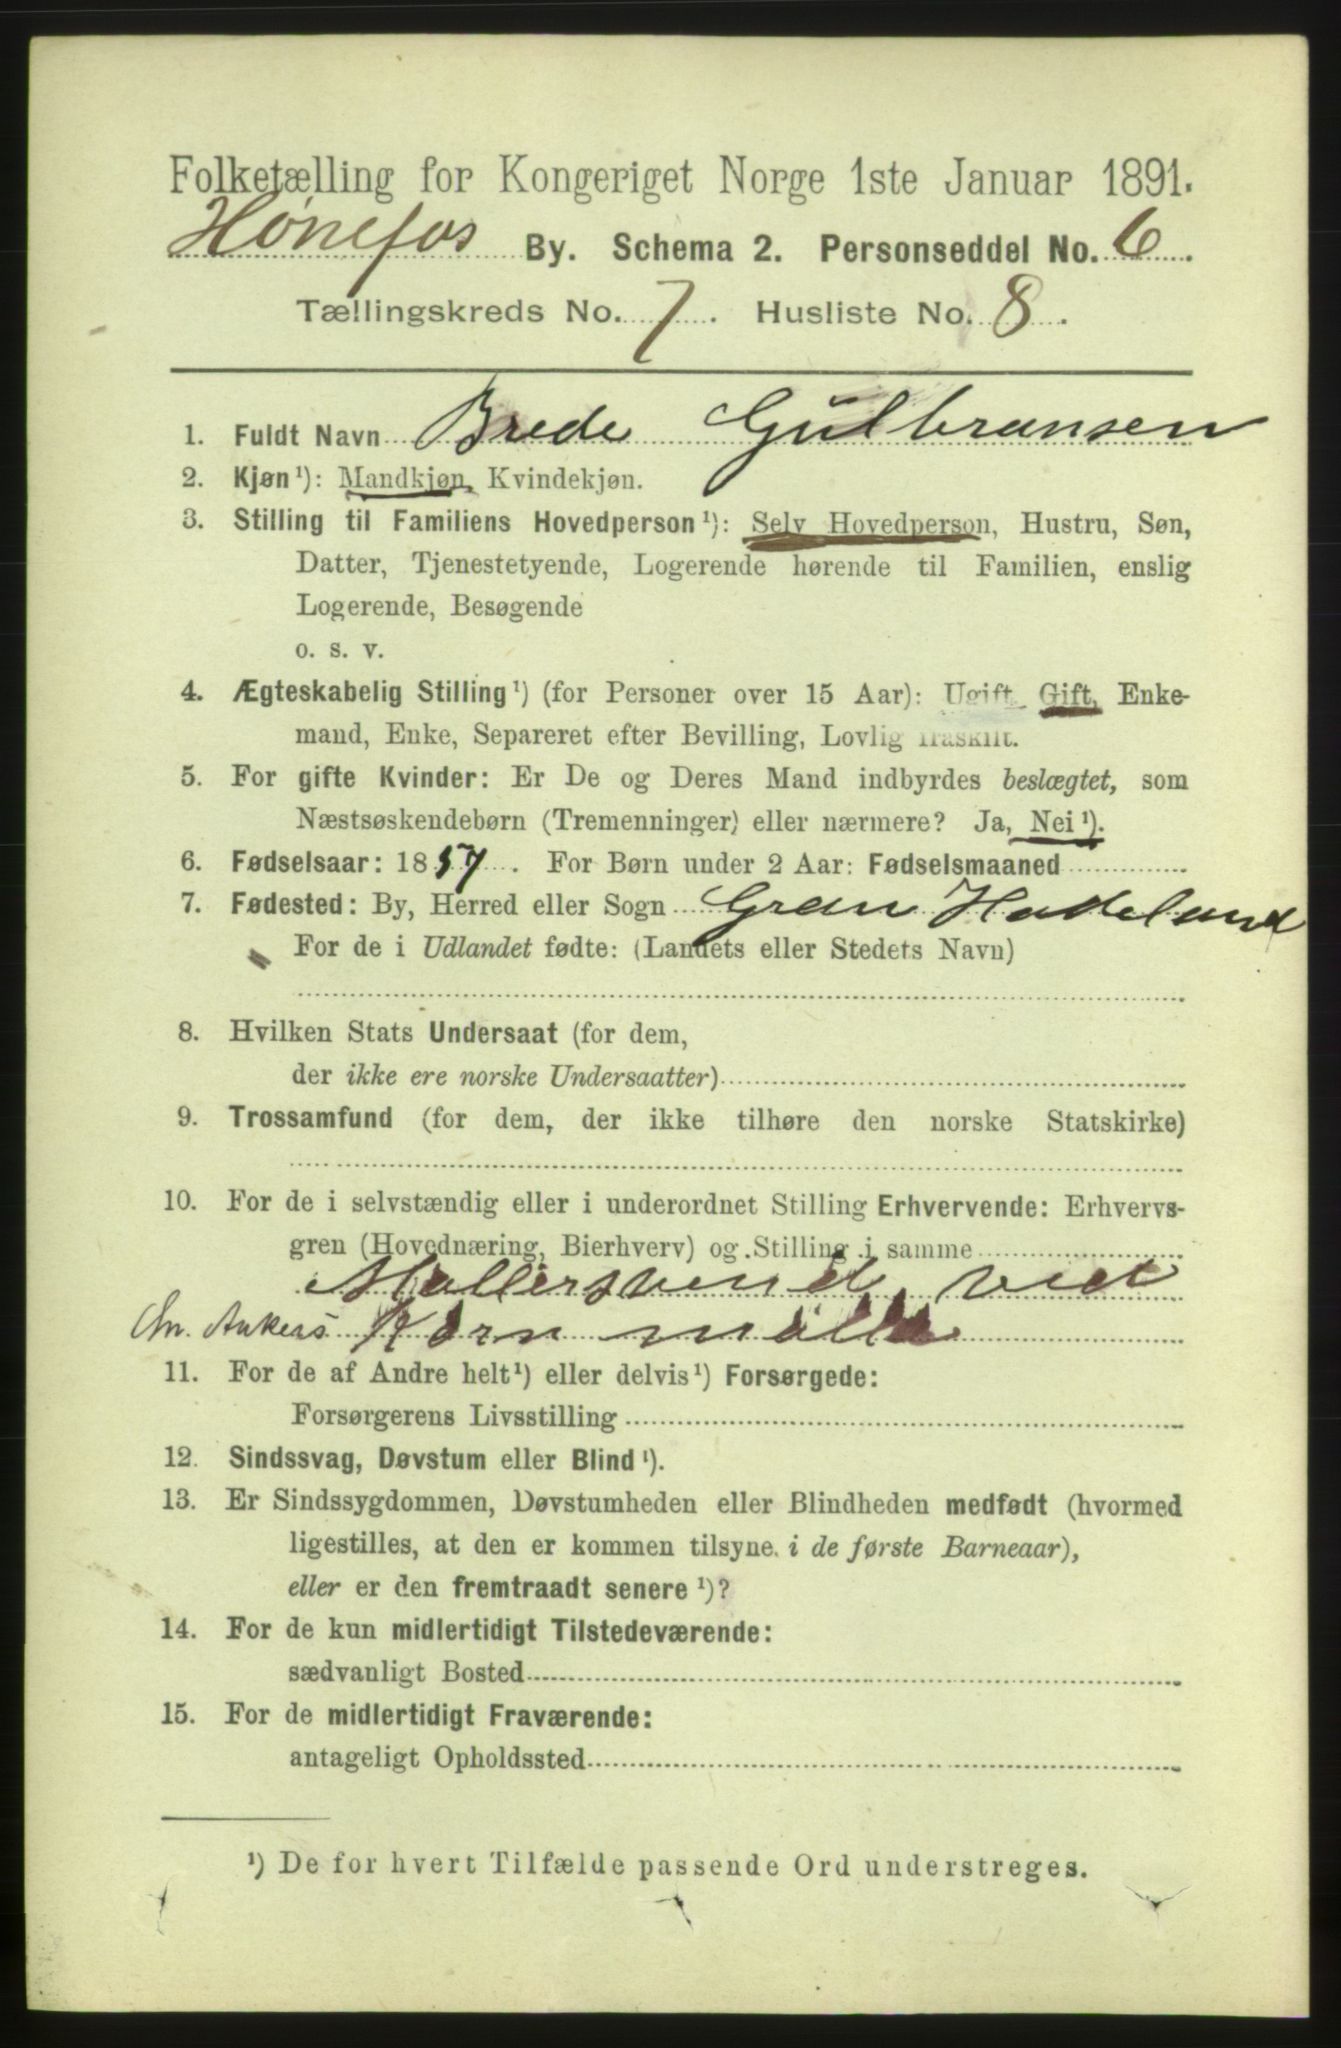 Folketælling for Kongeriget Norge 1ste Januar 1891.
Hønefos By. Schema 2. Personseddel No. 6.
Tællingskreds No. 7. Husliste No. 8.
1. Fuldt Navn Brede Gulbransen
2. Kjøn¹): Mandkjøn, Kvindekjøn.
3. Stilling til Familiens Hovedperson¹): Selv Hovedperson, Hustru, Søn,
Datter, Tjenestetyende, Logerende hørende til Familien, enslig
Logerende, Besøgende
o. s. v.
4. Ægteskabelig Stilling¹) (for Personer over 15 Aar): Ugift, Gift, Enke-
mand, Enke, Separeret efter Bevilling, Lovlig fraskilt.
5. For gifte Kvinder: Er De og Deres Mand indbyrdes beslægtet, som
Næstsøskendebørn (Tremenninger) eller nærmere? Ja, Nei¹).
6. Fødselsaar: 1857. For Børn under 2 Aar: Fødselsmaaned
7. Fødested: By, Herred eller Sogn Gran Hadeland
For de i Udlandet fødte: (Landets eller Stedets Navn)
8. Hvilken Stats Undersaat (for dem,
der ikke ere norske Undersaatter)
9. Trossamfund (for dem, der ikke tilhøre den norske Statskirke)
10. For de i selvstændig eller i underordnet Stilling Erhvervende: Erhvervs-
gren (Hovednæring, Bierhverv) og Stilling i samme
Møllersvend ved
Chr. Ankers Korn mølle
11. For de af Andre helt¹) eller delvis¹) Forsørgede:
Forsørgerens Livsstilling
12. Sindssvag, Døvstum eller Blind¹).
13. Er Sindssygdommen, Døvstumheden eller Blindheden medfødt (hvormed
ligestilles, at den er kommen tilsyne i de første Barneaar),
eller er den fremtraadt senere¹)?
14. For de kun midlertidigt Tilstedeværende:
sædvanligt Bosted
15. For de midlertidigt Fraværende:
antageligt Opholdssted
¹) De for hvert Tilfælde passende Ord understreges.